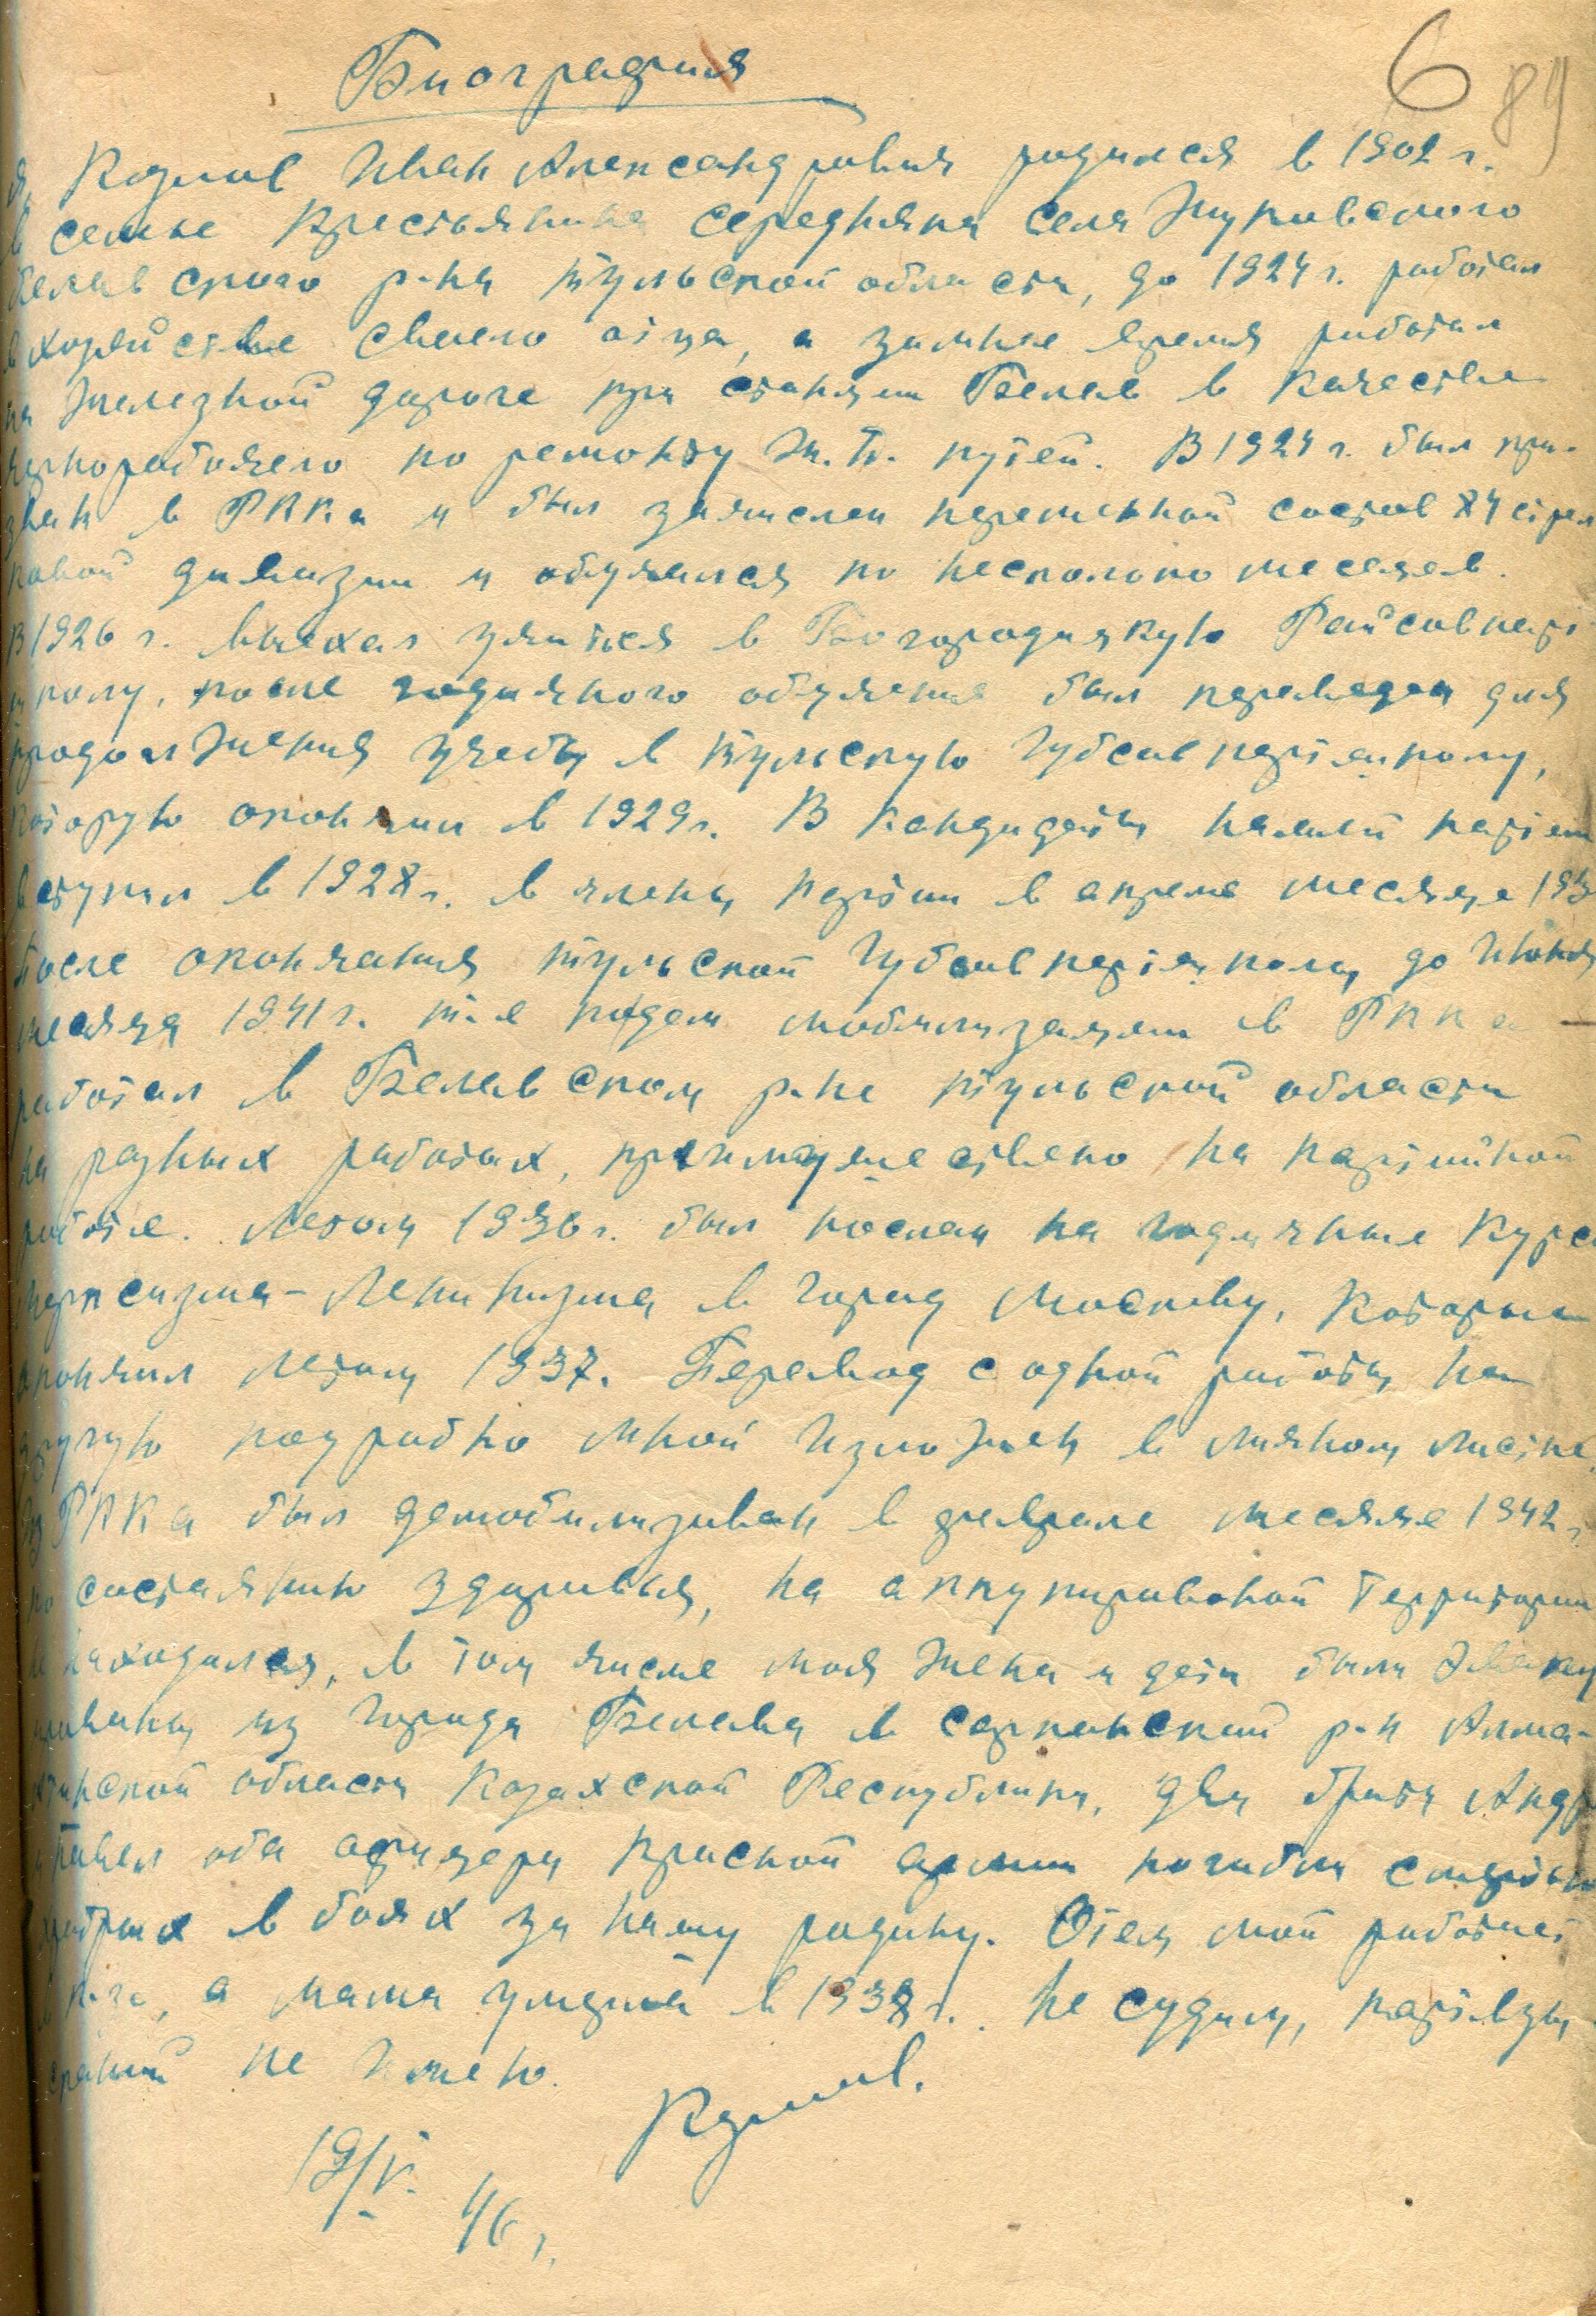 Биография
6 89
Я, Козлов Иван Александрович родился в 1902 г.
в семье крестьянина середняка села Жуковского
Белевского р-на Тульской области, до 1924 г. работал
в хозяйстве своего отца, а зимнее время работал
на железной дороге при станции Белев в качестве
чернорабочего по ремонту ж.д. путей. В 1924 г. был при-
зван в РККА и был зачислен переменной состав 84 стрел
ковой дивизии и обучался по несколько месяцев.
В 1926 г. выехал учиться в Богородицкую Райсовпарт
школу, после годичного обучения был переведен для
продолжения учебы в Тульскую Губсовпартшколу,
которую окончил в 1929 г. В кандидаты нашей партии
вступил в 1928 г. в члены партии в апреле месяце 193
После окончания Тульской Губсовпартшколы до июня
месяца 1941 г. т.е подем мобилизации в РККА —
работал в Белевском р-не Тульской области
на разных работах, преимущественно на партийной
работе. Летом 1936 г. был послан на годичные курсы
марксизма-Ленинизма в город Москву, которые
окончил летом 1937. Перевод с одной работы на
другую подробно мной изложен в личном листке.
Из РККА был демобилизован в феврале месяце 1942 г.
по состоянию здоровья, на аккупированой территории
не находился, в том числе моя жена и дети были эваку
ированы из города Белева в Сарканский р-н Алма-
атинской области Казахской Республики, два брата Андр
и Павел оба офицеры красной армии погибли смертью
храбрых в боях за нашу родину. Отец мой работает
в к-зе, а мама умерла в 1938 г. Не судим, партвзы-
сканий не имею.
Козлов.
19/V. 46 г.